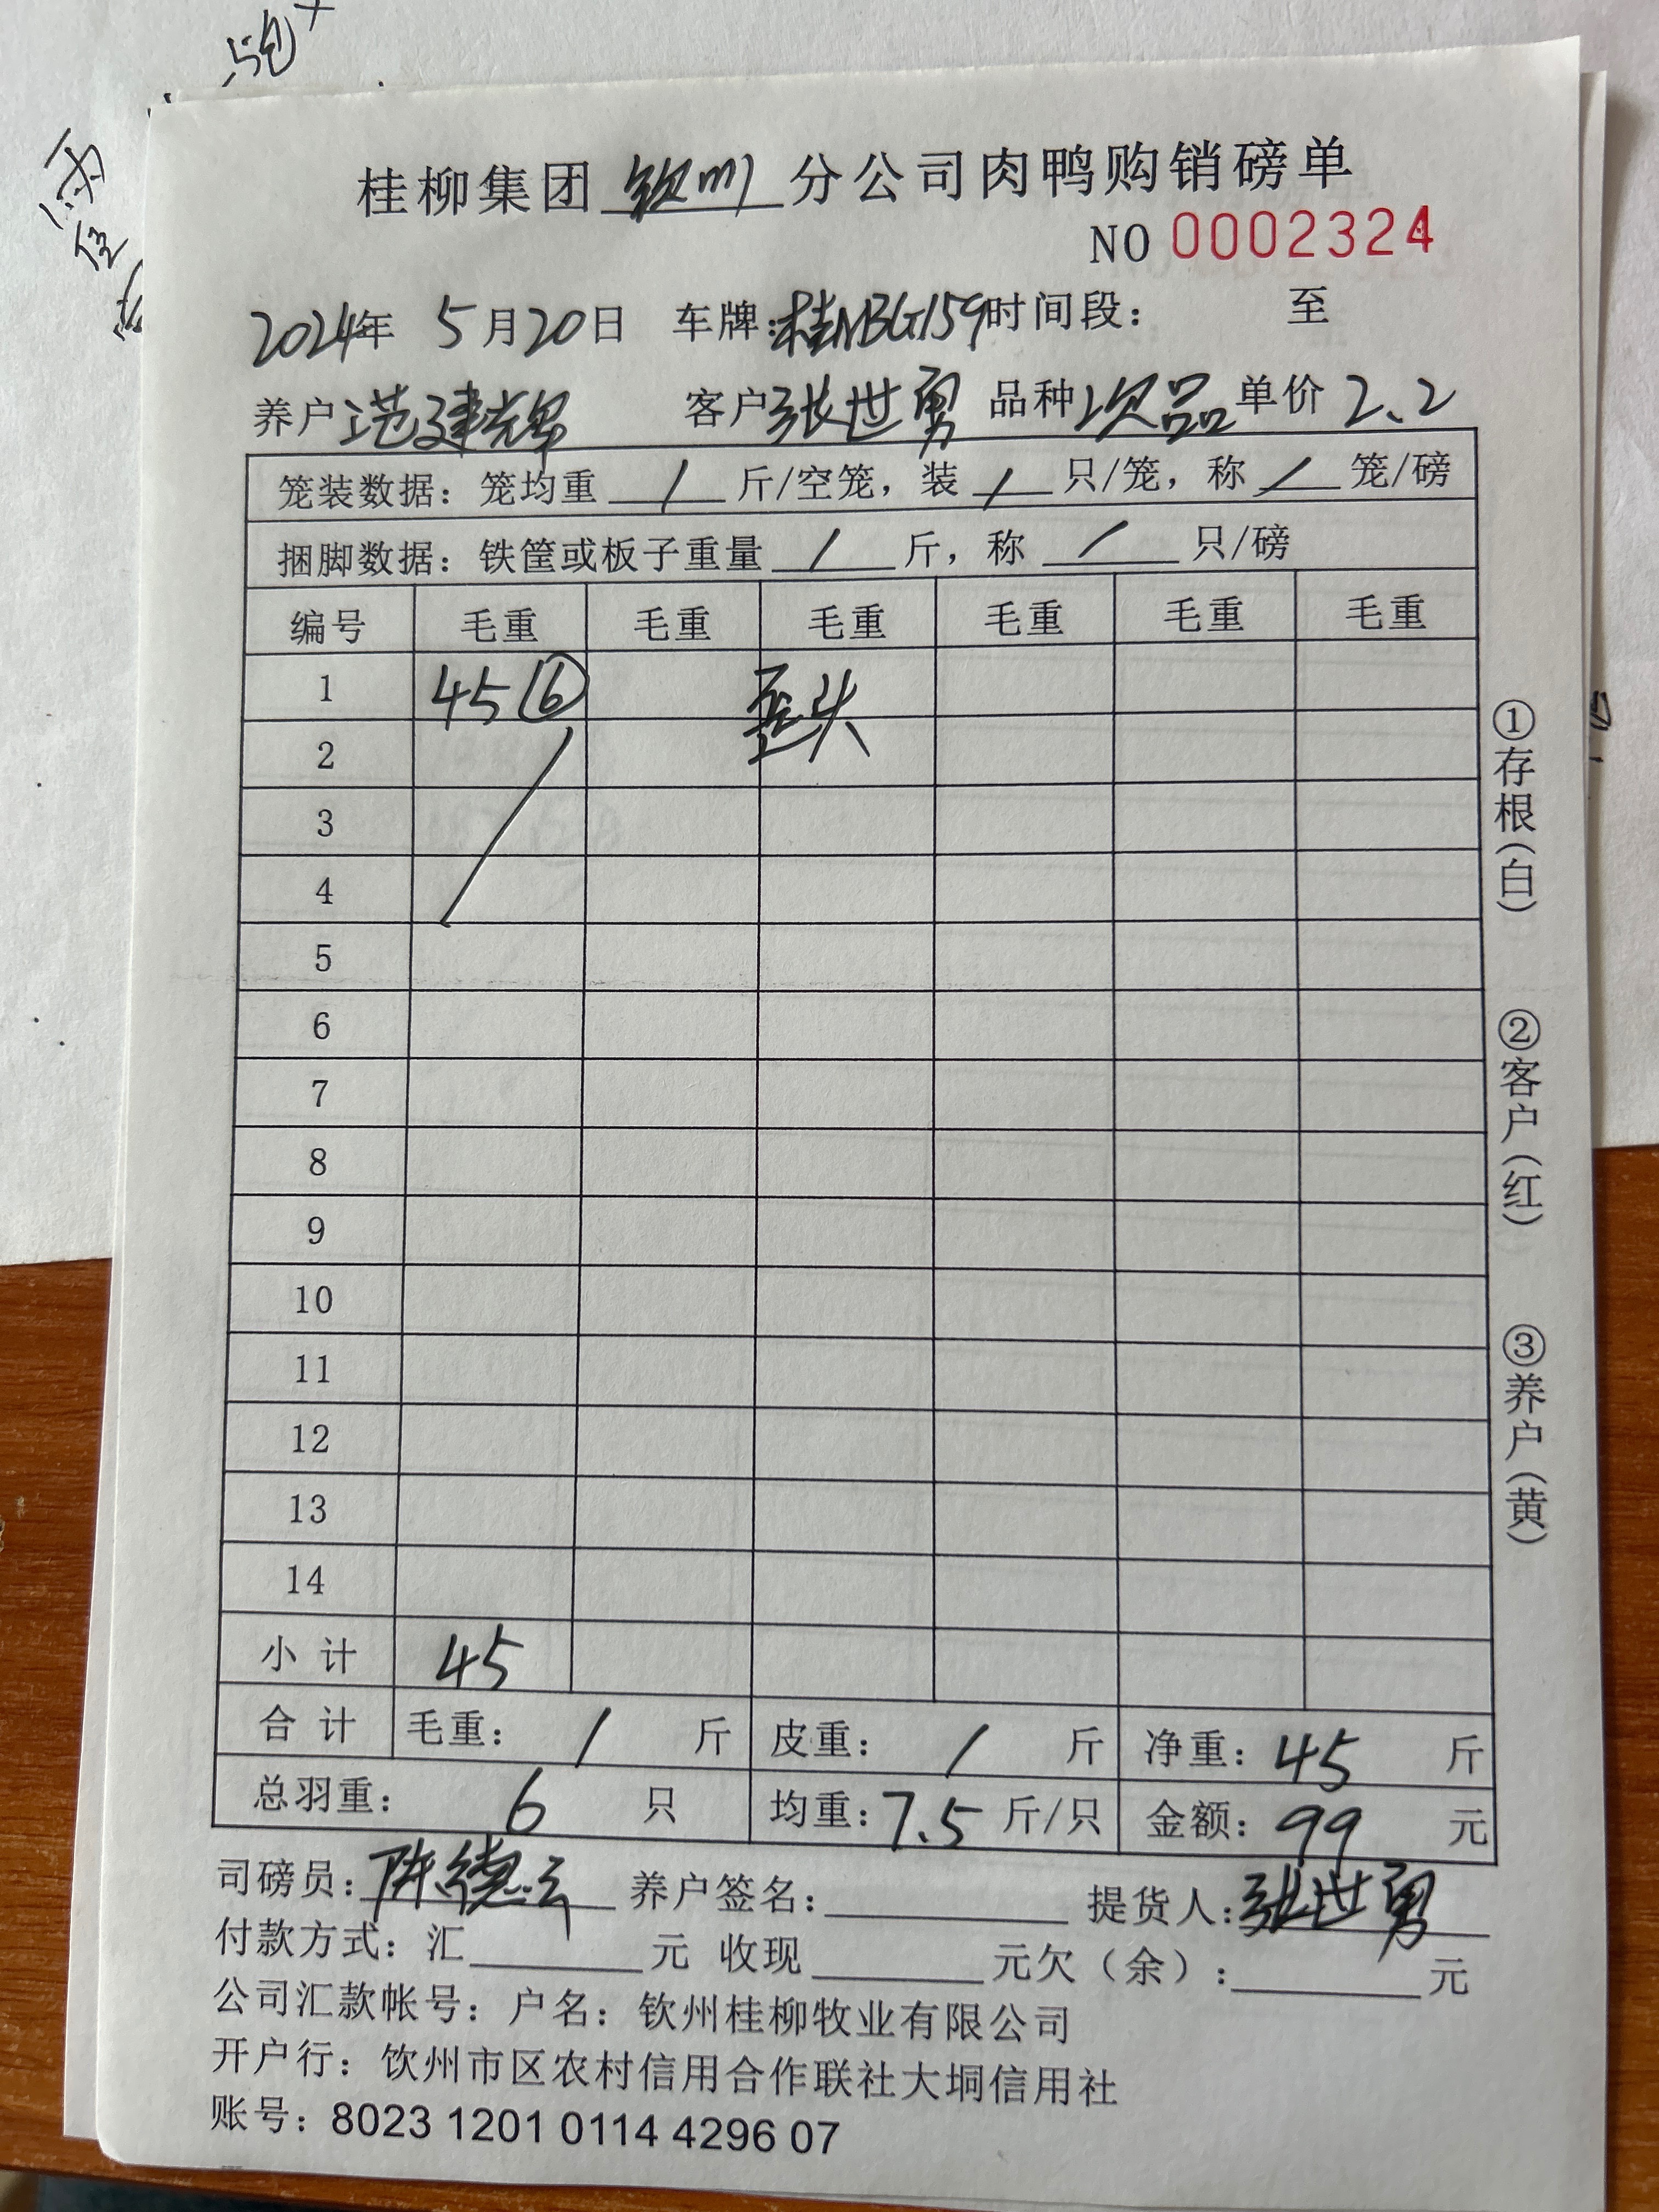 桂柳集团 钦州 分公司肉鸭购销磅单
NO 0002324
2024年 5月20日 车牌:桂NBG159 时间段: 至
养户 范建辉 客户 张世勇 品种 次品 单价 2.2
笼装数据: 笼均重 / 斤/空笼, 装 / 只/笼, 称 / 笼/磅
捆脚数据: 铁筐或板子重量 / 斤, 称 / 只/磅
编号 毛重 毛重 毛重 毛重 毛重 毛重
1 45⑥ 歪头
2
3
4
5
6
7
8
9
10
11
12
13
14
小计 45
合计 毛重: / 斤 皮重: / 斤 净重: 45 斤
总羽重: 6 只 均重: 7.5 斤/只 金额: 99 元
司磅员: 陈德云 养户签名: 提货人: 张世勇
付款方式: 汇 元 收现 元欠(余): 元
公司汇款帐号: 户名: 钦州桂柳牧业有限公司
开户行: 饮州市区农村信用合作联社大垌信用社
账号: 8023 1201 0114 4296 07
①存根(白)
②客户(红)
③养户(黄)